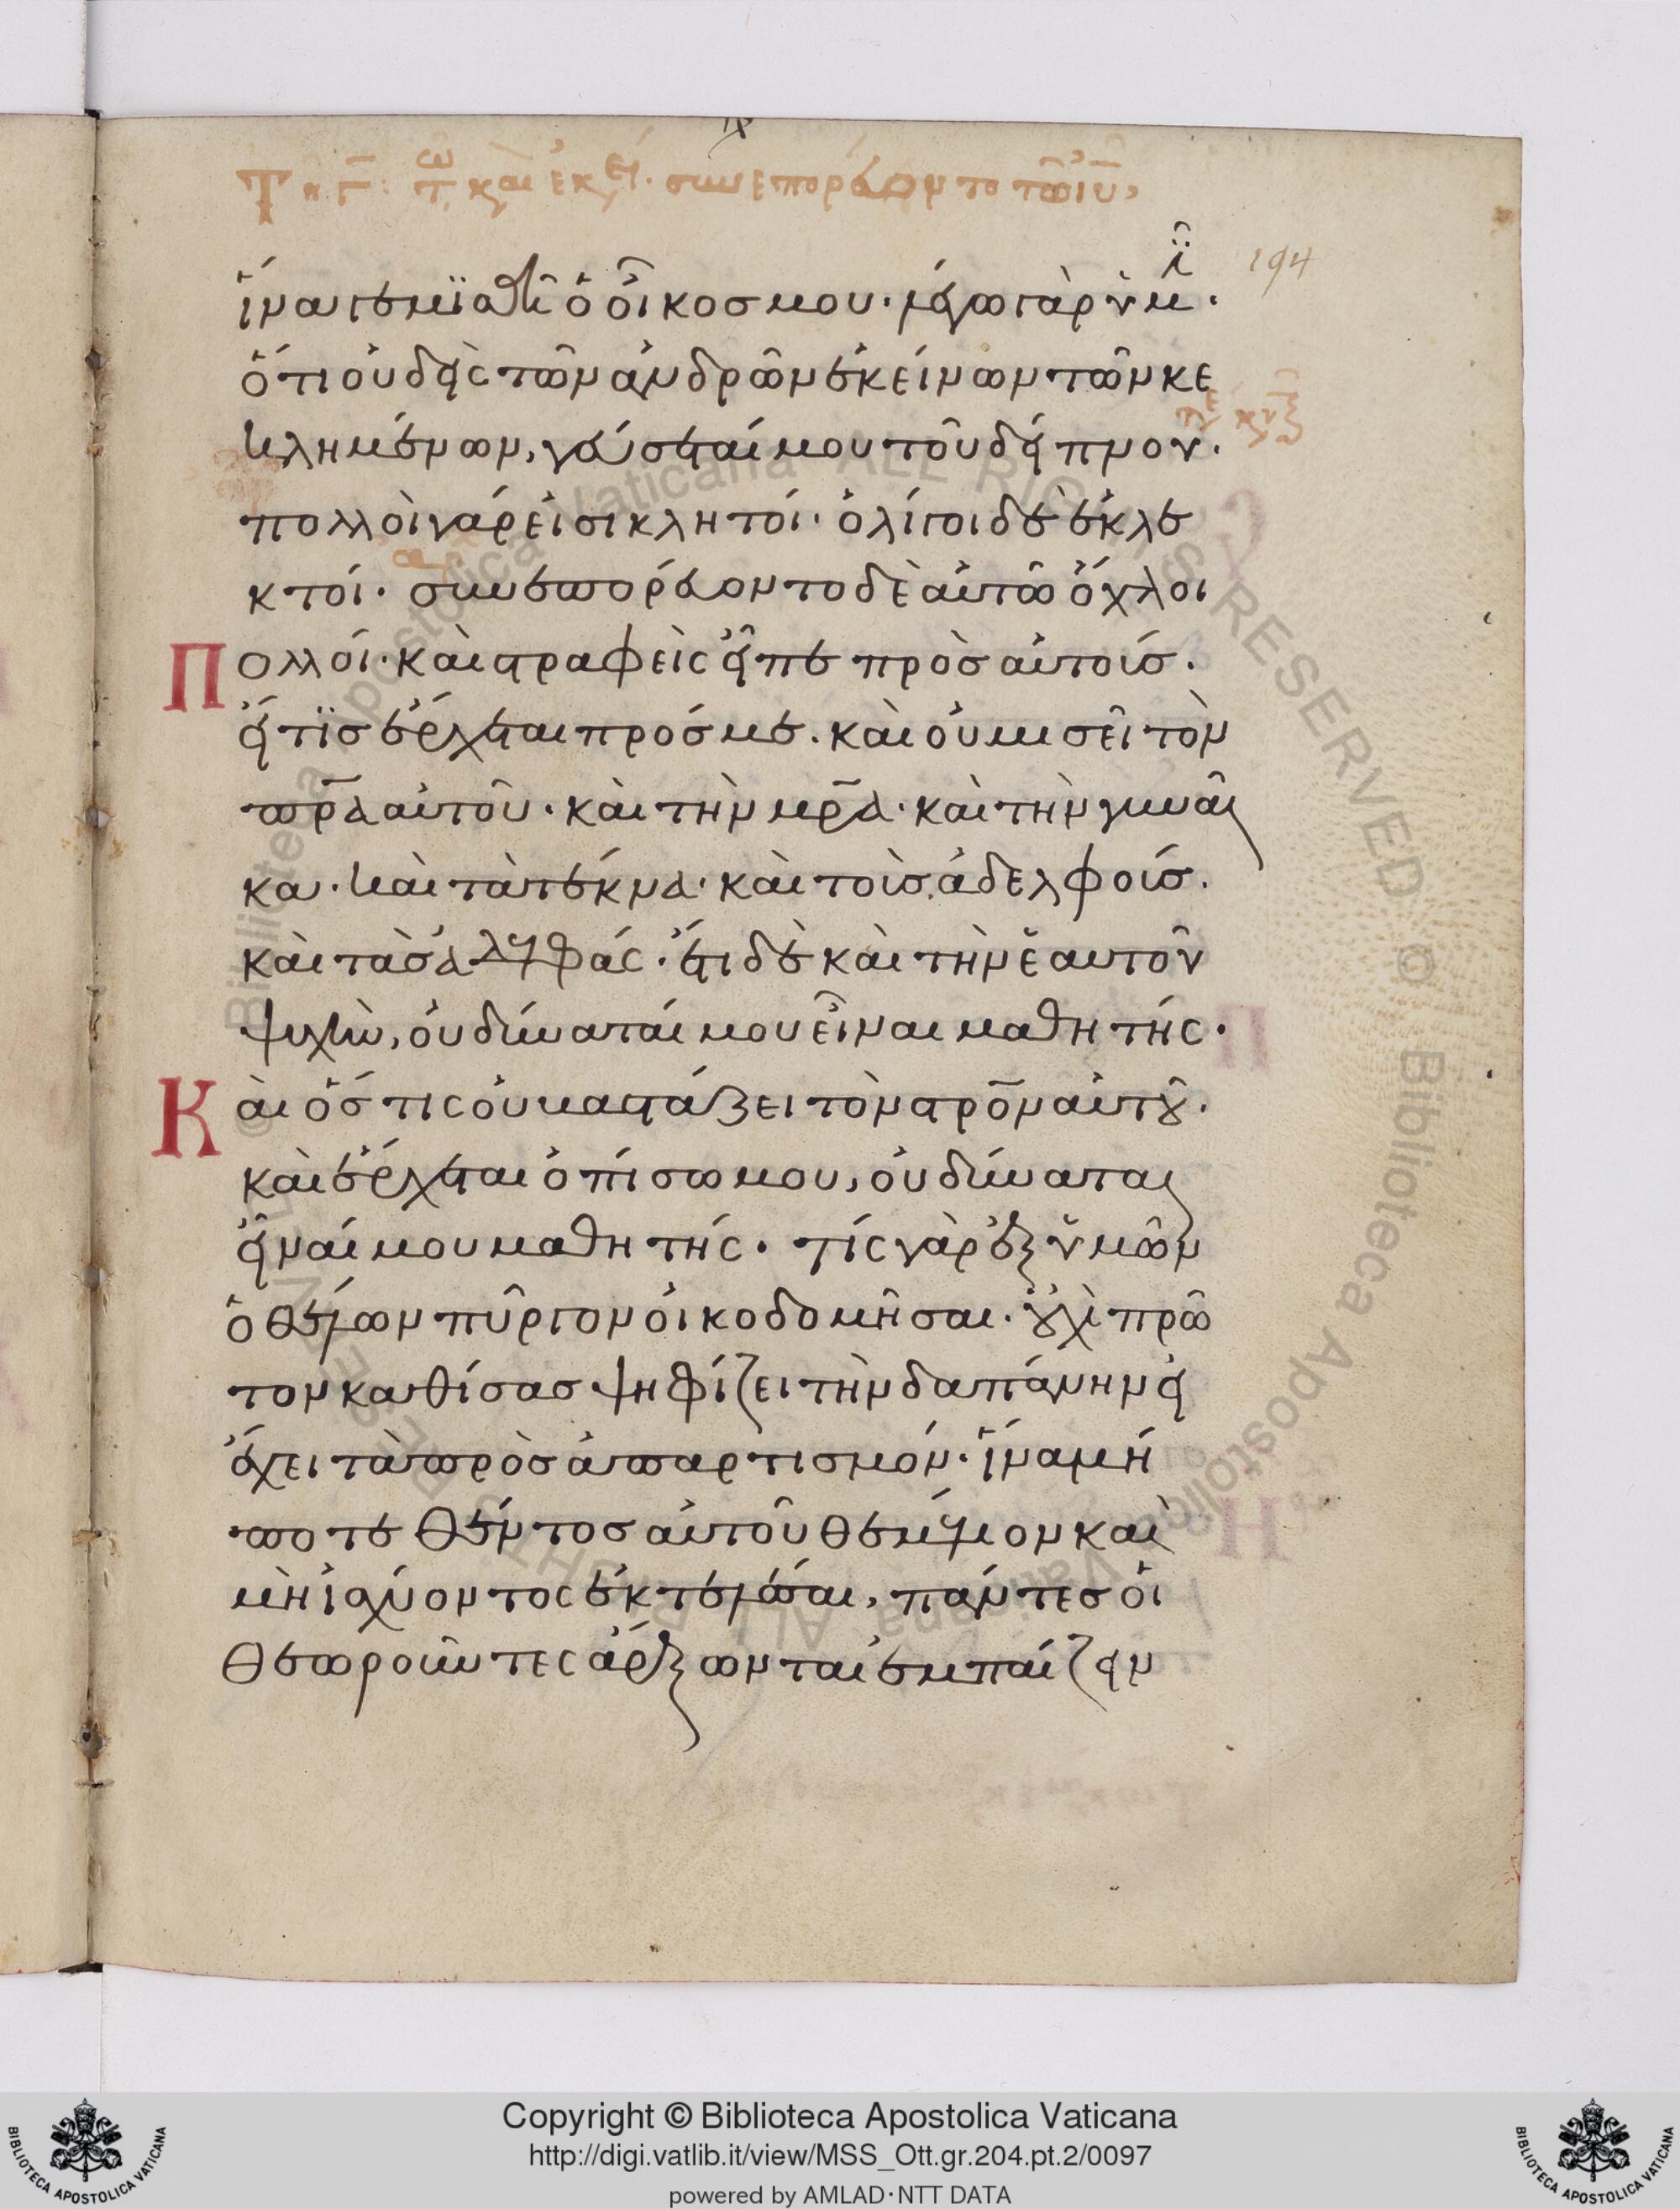 Τῆ γ: τ ω καὶ ἐκεί. συνεπορεύοντο τῶ ἰῦ,
194
ἵνα γεμϊσθῆ ὁ οἶκοσ μου. λέγω γὰρ ὑμῖ.
ὅτι οὐδεὶς τῶν ἀνδρῶν ἐκείνων τῶν κε
κλημένων, γεύσεταί μου τοῦ δείπνου.
πολλοὶ γάρ εἰσι κλητοί. ὀλίγοι δὲ ἐκλε
κτοί. συνεπορεύοντο δὲ αὐτῶ ὄχλοι
Πολλοί. καὶ στραφεὶς εἶπε πρὸσ αὐτούσ.
εἴ τϊσ ἔρχεται πρόσ με. καὶ οὐ μισεῖ τὸν
πρ̅α αὐτοῦ. καὶ τὴν μρ̅α. καὶ τὴν γυναῖ
κα. καὶ τὰ τέκνα. καὶ τοὺσ ἀδελφούσ.
καὶ τὰσ ἀδελφάς. ἔτι δὲ καὶ τὴν ἑαυτοῦ
ψυχὴν, οὐ δύναταί μου εἶναι μαθητής.
Καὶ ὅστις οὐ βαστάζει τὸν στρο̅ν αὐτοῦ.
καὶ ἔρχεται ὀπίσω μου, οὐ δύναται
εἶναί μου μαθητής. τίς γὰρ ἐξ ὑμῶν
ὁ θέλων πῦργον οἰκοδομῆσαι. οὐχὶ πρῶ
τον καθίσασ ψηφίζει τὴν δαπάνην εἰ
ἔχει τὰ πρὸσ ἀπαρτισμόν. ἵνα μή
ποτε θέντοσ αὐτοῦ θεμέλιον καὶ
μὴ ἰσχύοντος ἐκτελέσαι, πάντεσ οἱ
θεωροῦντες ἄρξωνται ἐμπαίζειν
Copyright © Biblioteca Apostolica Vaticana
http://digi.vatlib.it/view/MSS_Ott.gr.204.pt.2/0097
powered by AMLAD·NTT DATA